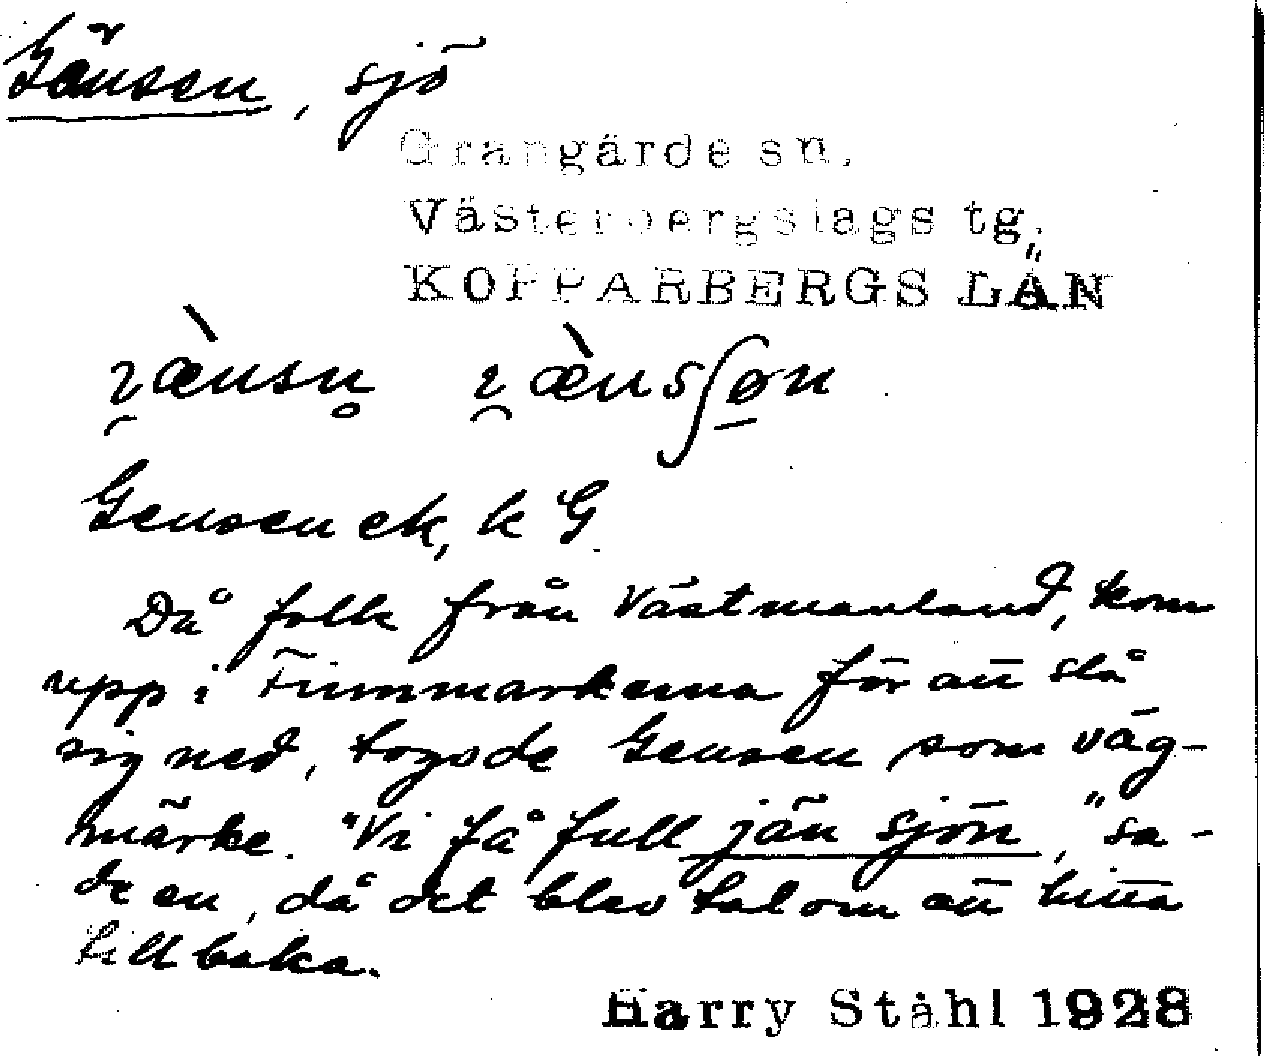 Gänsen, sjö
Grangärde sn.
Västerbergslags tg.
KOPPARBERGS LÄN
Gensen ek, k G
Då folk från Västmanland, kom
upp i Finnmarkerna för att slå
sig ned, togo de Gensen som väg-
märke. "Vi få full jän sjön," sa-
de en, då det blev tal om att hitta
tillbaka.
Harry Ståhl 1928